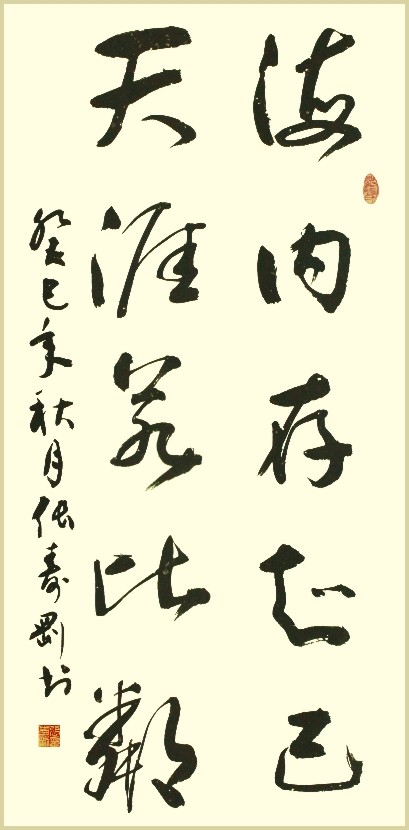 海内存知己
天涯若比邻
癸巳年秋月张寿刚书